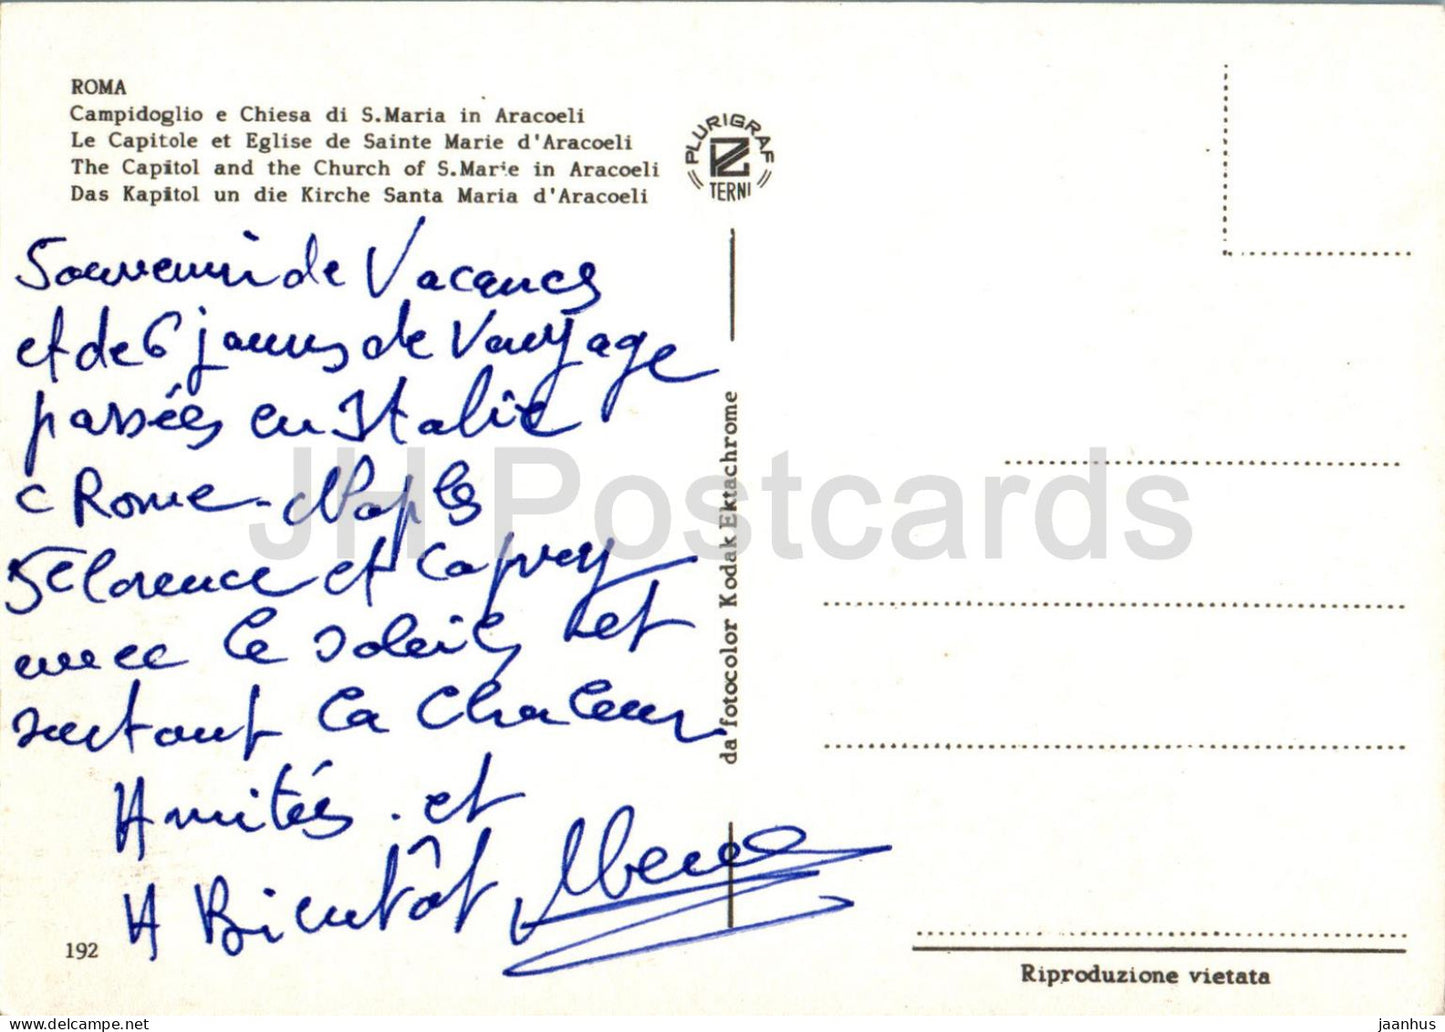 ROMA
Campidoglio e Chiesa di S.Maria in Aracoeli
Le Capitole et Eglise de Sainte Marie d'Aracoeli
The Capitol and the Church of S.Marie in Aracoeli
Das Kapitol un die Kirche Santa Maria d'Aracoeli
PLURIGRAF
TERNI
Souvenir de Vacances
et de 6 jours de Vouyage
passées en Italie
Rome - Naples
Florence et Caprey
avec le soleil, et
surtout la Chaleur
Amitiés . et
A Bientôt
192
da fotocolor Kodak Ektachrome
Riproduzione vietata
JH Postcards
jaanhus